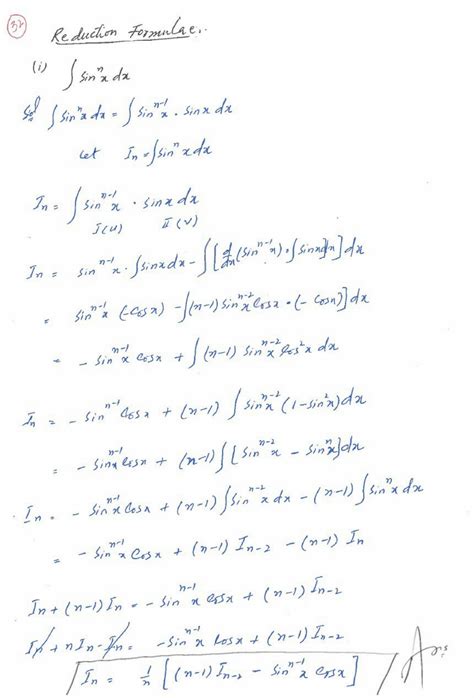 37
Reduction Formulae..
(i) ∫ sinⁿx dx
Solⁿ ∫ sinⁿx dx = ∫ sinⁿ⁻¹x · sinx dx
Let Iₙ = ∫ sinⁿx dx
Iₙ = ∫ sinⁿ⁻¹x · sinx dx
I(u) II(v)
Iₙ = sinⁿ⁻¹x · ∫ sinx dx - ∫ [d/dx (sinⁿ⁻¹x) · ∫ sinx dx] dx
= sinⁿ⁻¹x (-cosx) - ∫ (n-1) sinⁿ⁻²x cosx · (-cosx)] dx
= - sinⁿ⁻¹x cosx + ∫ (n-1) sinⁿ⁻²x cos²x dx
Iₙ = - sinⁿ⁻¹ cosx + (n-1) ∫ sinⁿ⁻²x (1-sin²x) dx
= - sinⁿ⁻¹x cosx + (n-1) ∫ [sinⁿ⁻²x - sinⁿx] dx
Iₙ = - sinⁿ⁻¹x cosx + (n-1) ∫ sinⁿ⁻²x dx - (n-1) ∫ sinⁿx dx
= - sinⁿ⁻¹x cosx + (n-1) Iₙ₋₂ - (n-1) Iₙ
Iₙ + (n-1) Iₙ = - sinⁿ⁻¹x cosx + (n-1) Iₙ₋₂
Iₙ + nIₙ - Iₙ = - sinⁿ⁻¹x cosx + (n-1) Iₙ₋₂
Iₙ = 1/n [(n-1) Iₙ₋₂ - sinⁿ⁻¹x cosx] Ans